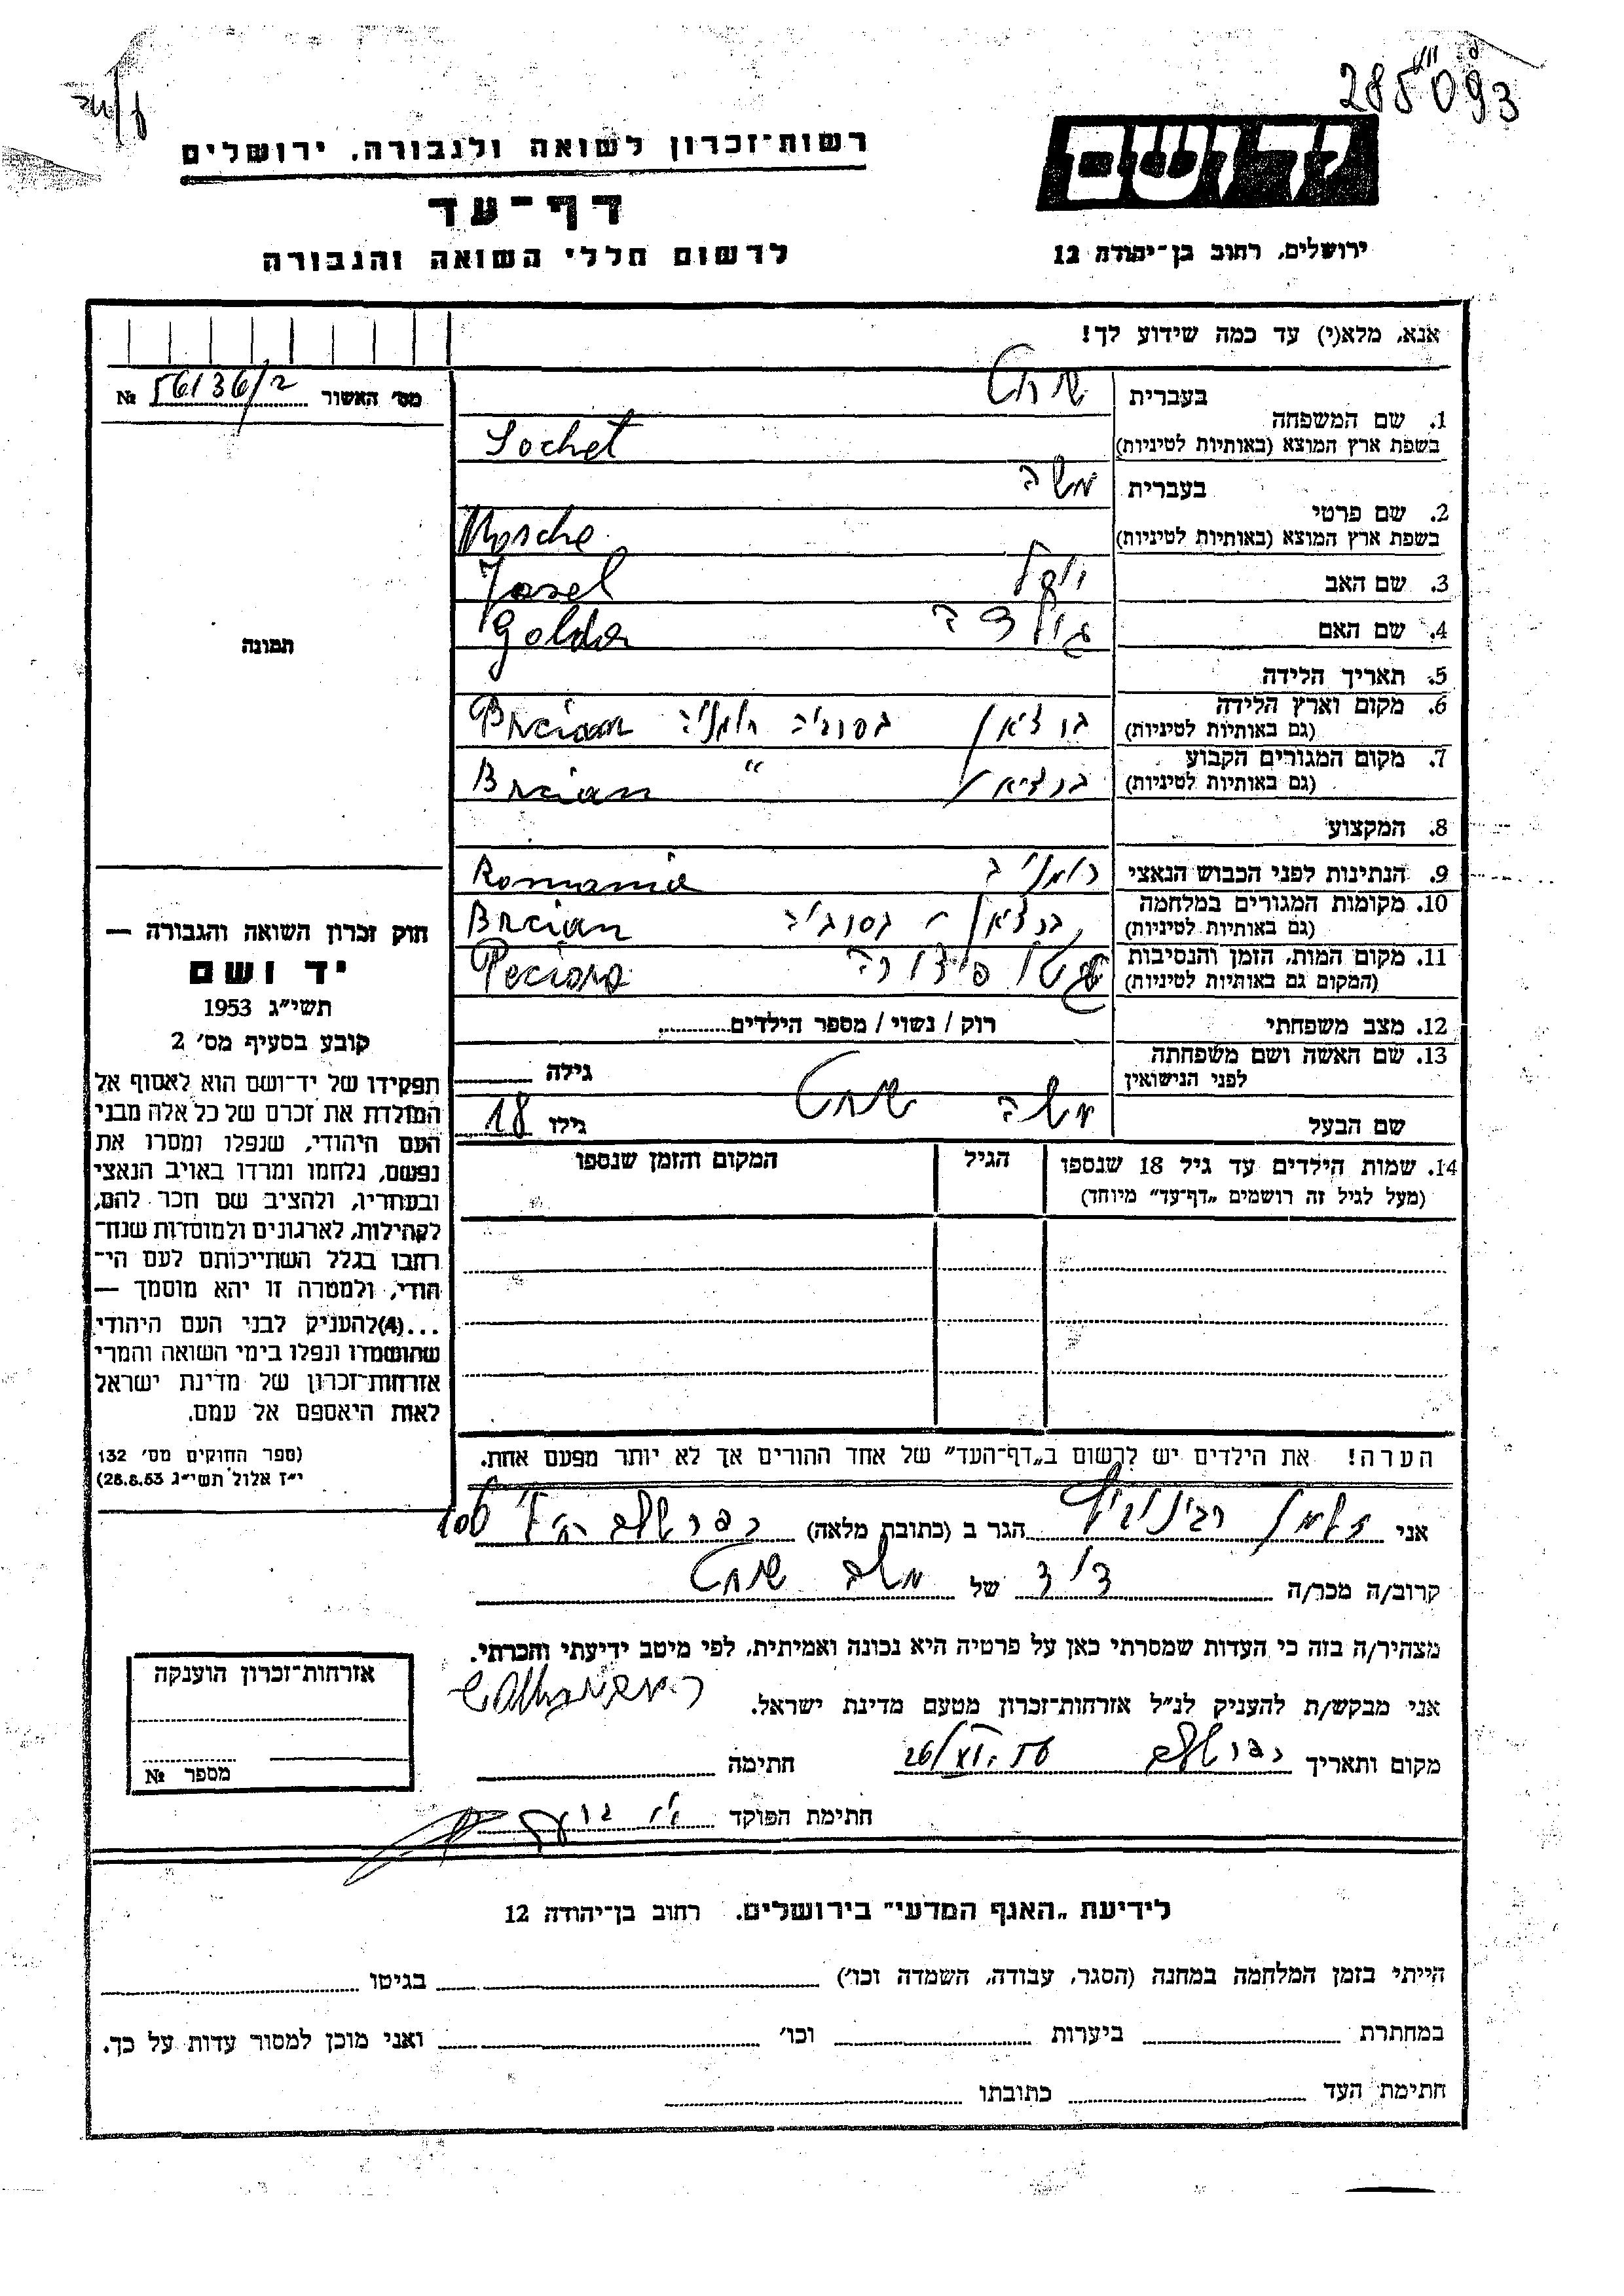 285093
רשות־זכרון לשואה ולגבורה, ירושלים
יד ושם
דף־עד
לרשום חללי השואה והגבורה
ירושלים, רחוב בן־יהודה 12
אנא, מלא(י) עד כמה שידוע לך!
מס' האשור № 56136/2
בעברית שוחט
1. שם המשפחה
בשפת ארץ המוצא (באותיות לטיניות) Sochet
בעברית משה
2. שם פרטי
בשפת ארץ המוצא (באותיות לטיניות) Mosche
3. שם האב יוסל Josel
4. שם האם גולדה Golda
תמונה
5. תאריך הלידה
6. מקום וארץ הלידה
(גם באותיות לטיניות) רומניה
7. מקום המגורים הקבוע
(גם באותיות לטיניות) " Brcian
8. המקצוע
9. הנתינות לפני הכבוש הנאצי רומניה Romania
10. מקומות המגורים במלחמה
(גם באותיות לטיניות) Brcian
11. מקום המות, הזמן והנסיבות
(המקום גם באותיות לטיניות) Peciora
12. מצב משפחתי רוק / נשוי / מספר הילדים
13. שם האשה ושם משפחתה
לפני הנישואין גילה
שם הבעל משה שוחט גילו 18
14. שמות הילדים עד גיל 18 שנספו הגיל המקום והזמן שנספו
(מעל לגיל זה רושמים „דף־עד" מיוחד)
חוק זכרון השואה והגבורה —
יד ושם
תשי"ג 1953
קובע בסעיף מס' 2
תפקידו של יד־ושם הוא לאסוף אל
המולדת את זכרם של כל אלה מבני
העם היהודי, שנפלו ומסרו את
נפשם, נלחמו ומרדו באויב הנאצי
ובעוזריו, ולהציב שם וזכר להם,
לקהילות, לארגונים ולמוסדות שנח־
רבו בגלל השתייכותם לעם הי־
הודי, ולמטרה זו יהא מוסמך —
...(4) להעניק לבני העם היהודי
שהושמדו ונפלו בימי השואה והמרי
אזרחות־זכרון של מדינת ישראל
לאות היאספם אל עמם.
(ספר החוקים מס' 132
י"ז אלול תשי"ג 28.8.53)
הערה! את הילדים יש לרשום ב„דף־העד" של אחד ההורים אך לא יותר מפעם אחת.
אני זלמן רבינוביץ הגר ב (כתובת מלאה)
קרוב/ה מכר/ה דוד של משה שוחט
מצהיר/ה בזה כי העדות שמסרתי כאן על פרטיה היא נכונה ואמיתית, לפי מיטב ידיעתי והכרתי.
אני מבקש/ת להעניק לנ"ל אזרחות־זכרון מטעם מדינת ישראל.
מקום ותאריך חתימה
חתימת הפוקד
אזרחות־זכרון הוענקה
מספר №
לידיעת „האגף המדעי" בירושלים, רחוב בן־יהודה 12
הייתי בזמן המלחמה במחנה (הסגר, עבודה, השמדה וכו') בגיטו
במחתרת ביערות וכו' ואני מוכן למסור עדות על כך.
חתימת העד כתובתו